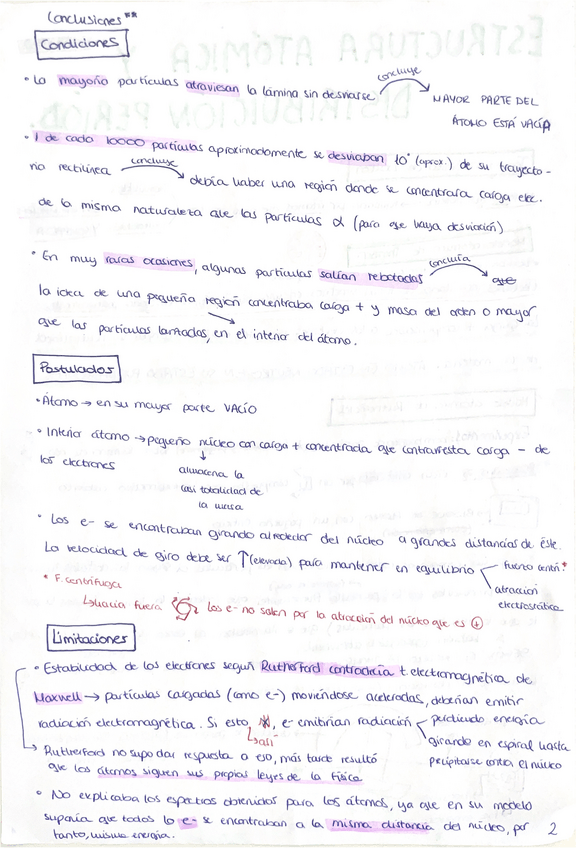 Conclusiones **
Condiciones
• La mayoría partículas atraviesan la lámina sin desviarse concluye MAYOR PARTE DEL
ÁTOMO ESTÁ VACÍA
• 1 de cada 10000 partículas aproximadamente se desviaban 10° (aprox.) de su trayecto-
ria rectilínea concluye debía haber una región donde se concentrara carga elec.
de la misma naturaleza que las partículas α (para que haya desviación)
• En muy raras ocasiones, algunas partículas salían rebotadas concluía que
la idea de una pequeña región concentraba carga + y masa del orden o mayor
que las partículas lanzadas, en el interior del átomo.
Postulados
• Átomo → en su mayor parte VACÍO
• Interior átomo → pequeño núcleo con carga + concentrada que contrarresta carga - de
los electrones
↓
almacena la
casi totalidad de
la masa
• Los e- se encontraban girando alrededor del núcleo a grandes distancias de éste.
La velocidad de giro debe ser ↑ (elevada) para mantener en equilibrio fuerza centrí.*
atracción
electrostática
* F. centrífuga
↳ hacia fuera los e- no salen por la atracción del núcleo que es +
Limitaciones
• Estabilidad de los electrones según Rutherford contradecía t. electromagnética de
Maxwell → partículas cargadas (como e-) moviéndose aceleradas, deberían emitir
radiación electromagnética. Si esto, e- emitirían radiación perdiendo energía
↳ así
girando en espiral hasta
precipitarse contra el núcleo
Rutherford no supo dar respuesta a eso, más tarde resultó
que los átomos siguen sus propias leyes de la Física
• No explicaba los espectros obtenidos para los átomos, ya que en su modelo
suponía que todos lo e- se encontraban a la misma distancia del núcleo, por
tanto, misma energía.
2